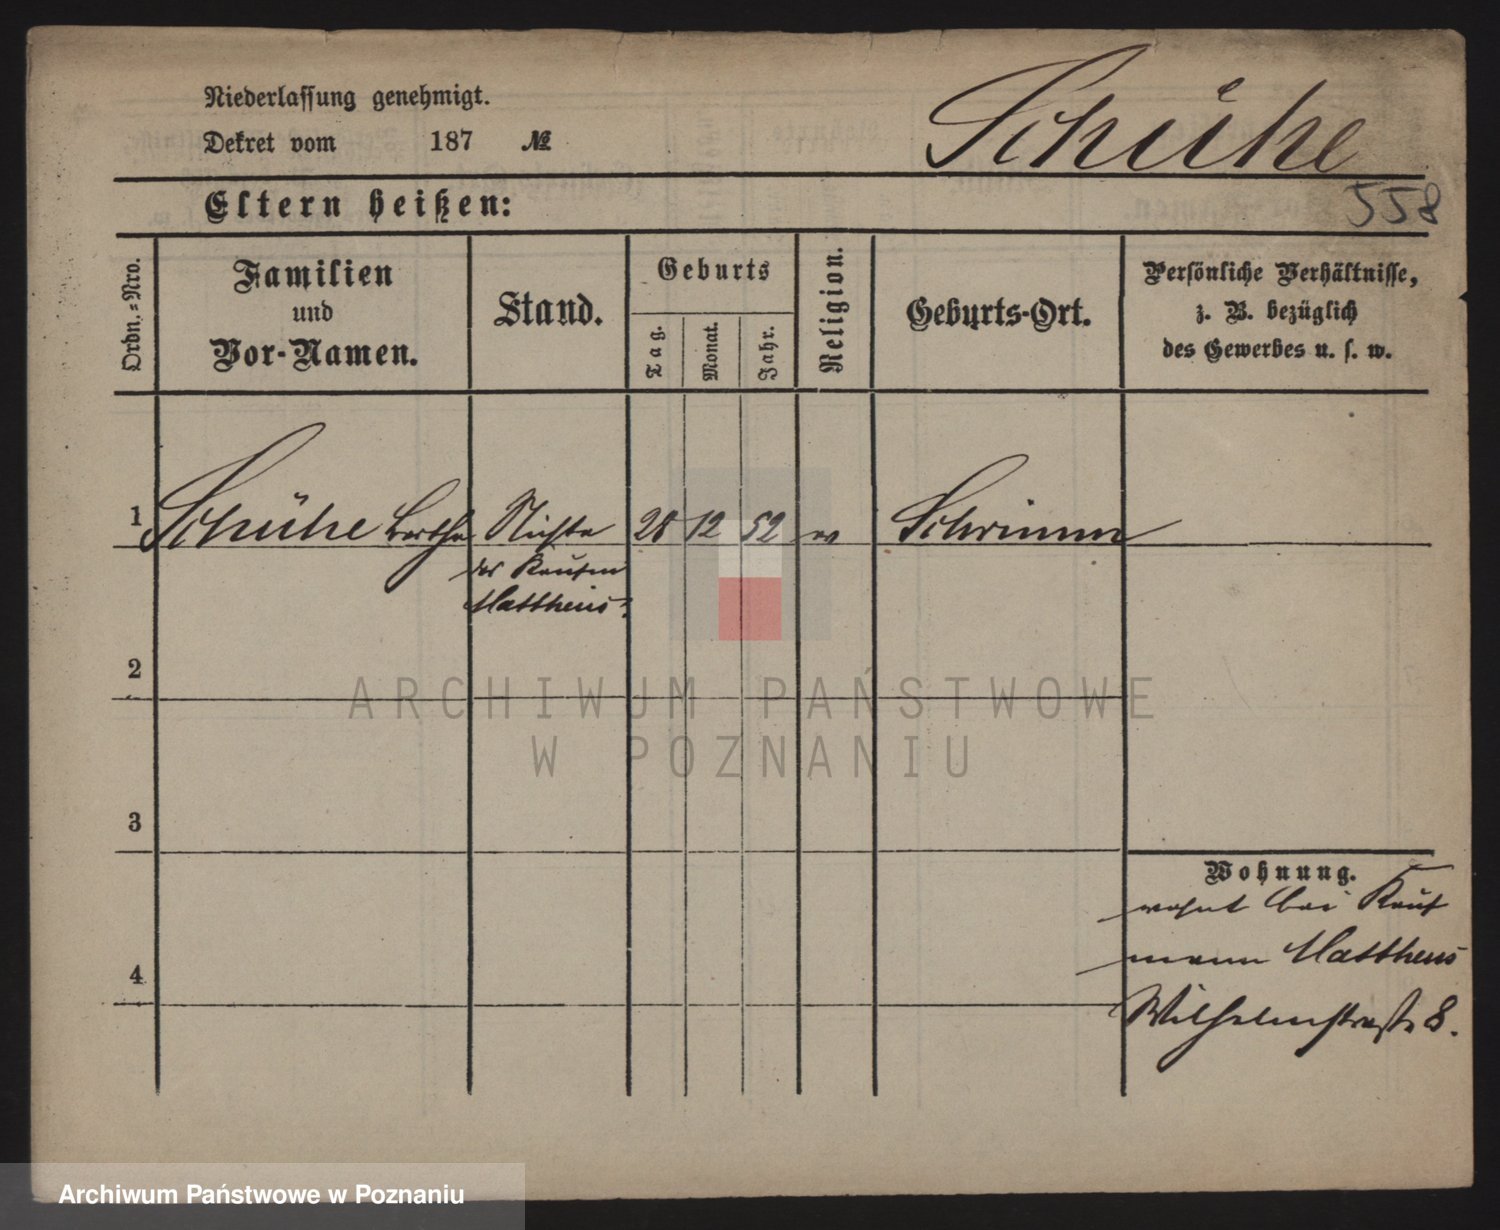 Niederlassung genehmigt.
Schühe
Dekret vom 187 №
Eltern heißen:
558
Ordn.-Nro.
Familien und Vor-Namen.
Stand.
Geburts
Tag.
Monat.
Jahr.
Religion.
Geburts-Ort.
Persönliche Verhältnisse,
z. B. bezüglich
des Gewerbes u. s. w.
1 Schühe Bertha Nichte 28 12 52 ev Schrimm
des Kaufm
Mattheus
2
3
4
Wohnung.
wohnt bei Kauf
mann Mattheus
Wilhelmstraße 8.
ARCHIWUM PAŃSTWOWE
W POZNANIU
Archiwum Państwowe w Poznaniu